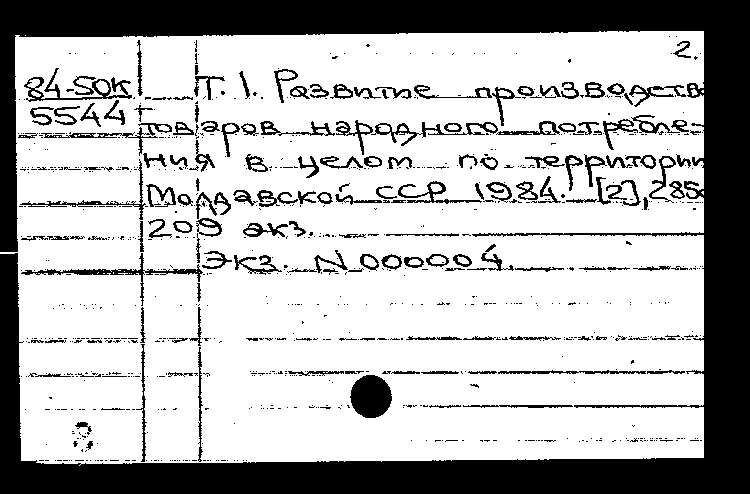 2.
84-50К Т. 1. Развитие производства
5544 товаров народного потребле-
ния в целом по территории
Молдавской ССР. 1984. [2], 285с
209 экз.
Экз. N 000004.
8